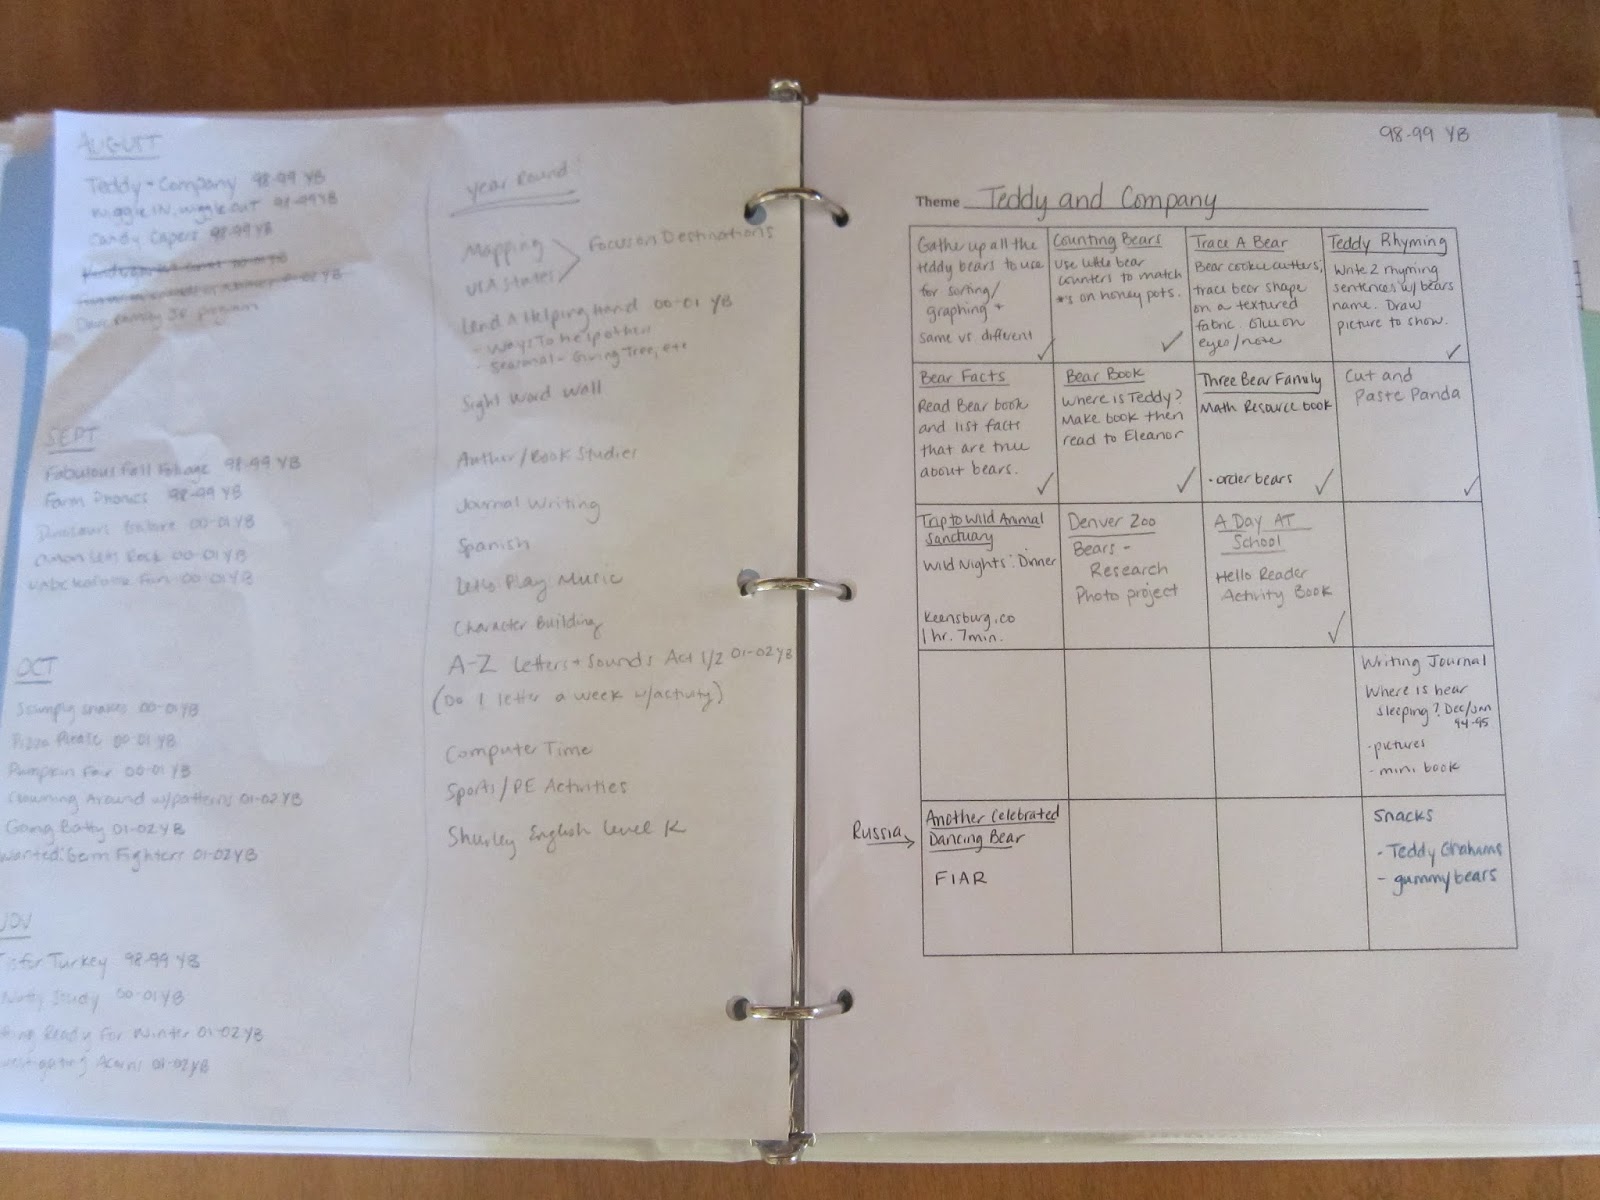 AUGUST
Teddy + Company 98-99 YB
Wiggle IN, wiggle OUT 98-99 YB
Candy Capers 98-99 YB
00-01 YB
01-02 YB
program
SEPT
Fabulous Fall Foliage 98-99 YB
Farm Phonics 98-99 YB
Dinosaurs Galore 00-01 YB
Rock 00-01 YB
Fun 00-01 YB
OCT
snakes 00-01 YB
Pizza 00-01 YB
Pumpkin Fair 00-01 YB
Clowning Around w/patterns 01-02 YB
Going Batty 01-02 YB
Wanted: Germ Fighters 01-02 YB
NOV
T is for Turkey 98-99 YB
Nutty Study 00-01 YB
Ready For Winter 01-02 YB
Acorns 01-02 YB
Year Round
Mapping
USA States
Focus on Destinations
Lend A Helping Hand 00-01 YB
- Ways To be
- Seasonal - Giving Tree, etc
Sight Word Wall
Author/Book Studies
Journal Writing
Spanish
Let's Play Music
Character Building
A-Z Letters + Sounds Act 1/2 01-02 YB
(Do 1 letter a week w/activity)
Computer Time
Sports/PE Activities
Shurley English Level K
98-99 YB
Theme Teddy and Company
Gather up all the
teddy bears to use
for sorting/
graphing +
same vs. different ✓
Counting Bears
use little bear
counters to match
#'s on honey pots.
✓
Trace A Bear
Bear cookie cutters,
trace bear shape
on a textured
fabric. Glue on
eyes/nose
Teddy Rhyming
Write 2 rhyming
sentences w/ bears
name. Draw
picture to show.
✓
Bear Facts
Read Bear book
and list facts
that are true
about bears. ✓
Bear Book
Where is Teddy?
Make book then
read to Eleanor
✓
Three Bear Family
Math Resource book
- order bears ✓
Cut and
Paste Panda
✓
Trip to Wild Animal
Sanctuary
Wild Nights: Dinner
Keensburg, co
1 hr. 7min.
Denver Zoo
Bears -
Research
Photo project
A Day AT
School
Hello Reader
Activity Book
✓
Writing Journal
Where is bear
sleeping? Dec/Jan
94-95
- pictures
- mini book
Russia
Another Celebrated
Dancing Bear
FIAR
Snacks
- Teddy Grahams
- gummy bears